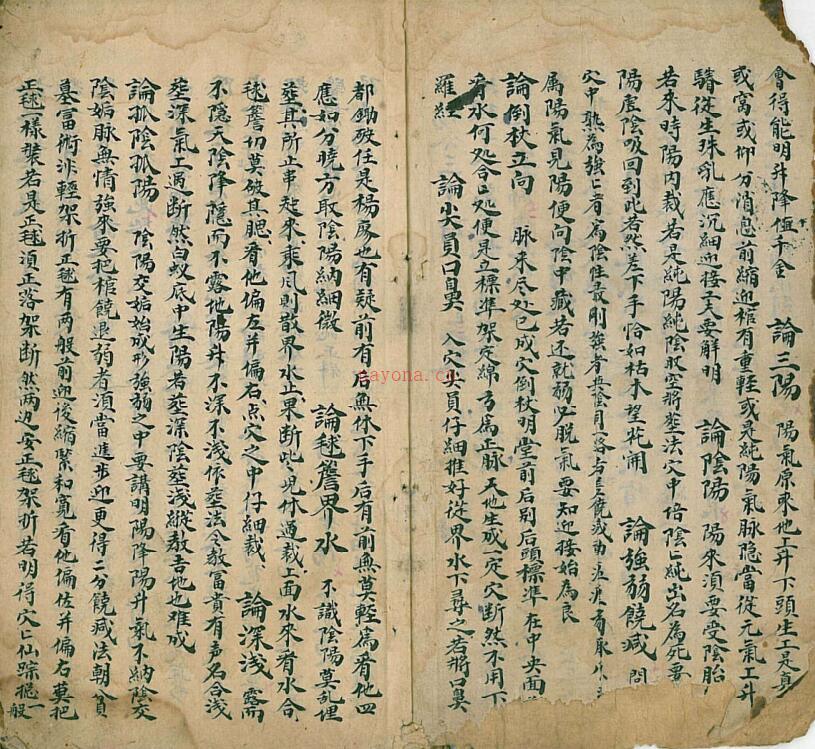 會得能明升降值千金　論三陽　陽氣原來地上升下頭生上是真
或窩或仰分消息前縮迎棺有重輕或是純陽氣脉隐當從元氣工升
騎從生珠乳應沉細迎接之夫要解明　論陰陽　陽來須要受陰胎
若來時陽内裁若是純陽純陰脫空將塟法穴中培陰亡純出名為死要
陽崖陰吸回到此若然差下手恰如枯木望花開　論強弱饒減　問
穴中熟為強亡者為陰性最剛
属陽氣見陽便向陰中藏若还就弱必脱氣要知迎接始為良
論倒杖立向　脉來尽处已成穴倒杖明堂前后别后頭標準在中央面
看水何处合合处便是立標準架定綿方為正脉天地生成一定穴断然不用下
羅經　論尖員口臭　入穴尖員仔細推好從界水下尋之若將口臭
都鋤破任是楊房也有疑前有后無休下手后有前無莫輕為看他四
應如分曉方取陰陽納細微　論毬簷界水　不識陰陽莫乱埋
塟其所止串起來乘風則散界水止果断此児休過裁上面水來看水合
毬簷切莫破其腮看他偏左并偏右点穴之中仔細裁　論深浅　露而
不隱天陰降隱而不露地陽升不深不浅依塟法令教富貴有声名合浅
塟深氣工過断然白蚁底中生陽若塟深陰塟浅縱教吉地也难成
論孤陰孤陽　陰陽交姤始成形強弱之中要講明陽降陽升氣不納陰交
陰姤脉無情強來要把棺饒退弱者須當進步迎更得二分饒减法朝貧
墓富術非輕架折正毬有两般前迎後縮緊和寬看他偏佐并偏右莫把
正毬一樣裝若是正毬須正落架断然两边安正毬架折若明得穴亡仙踪揔一般